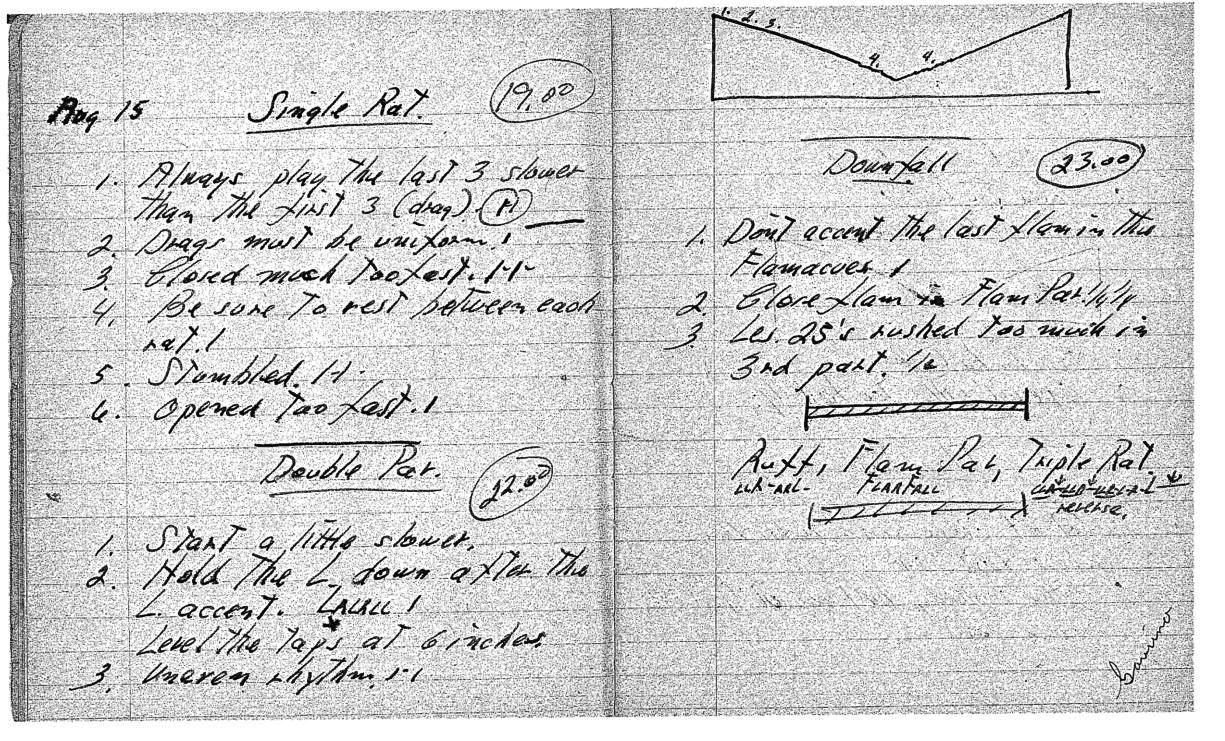 Aug 15 Single Rat. 19.00
1. Always play the last 3 slower
than the first 3 (drag)
2. Drags must be uniform. 1
3. Closed much too fast. 1-1-
4. Be sure to rest between each
rat. 1
5. Stumbled. 1-1-
6. Opened too fast. 1
Double Par. 22.00
1. Start a little slower.
2. Hold the L down after the
L accent. LRLRLL 1
Level the taps at 6 inches.
3. Uneven rhythm. 1-1
1. 2. 3. 4. 4.
Downfall 23.00
1. Don't accent the last flam in the
Flamacues. 1
2. Close flam in Flam Par.
3. Les. 25's rushed too much in
3rd part. 1/2
Ruff, Flam Par, Triple Rat.
LLR-RRL- FLARFALL
reverse.